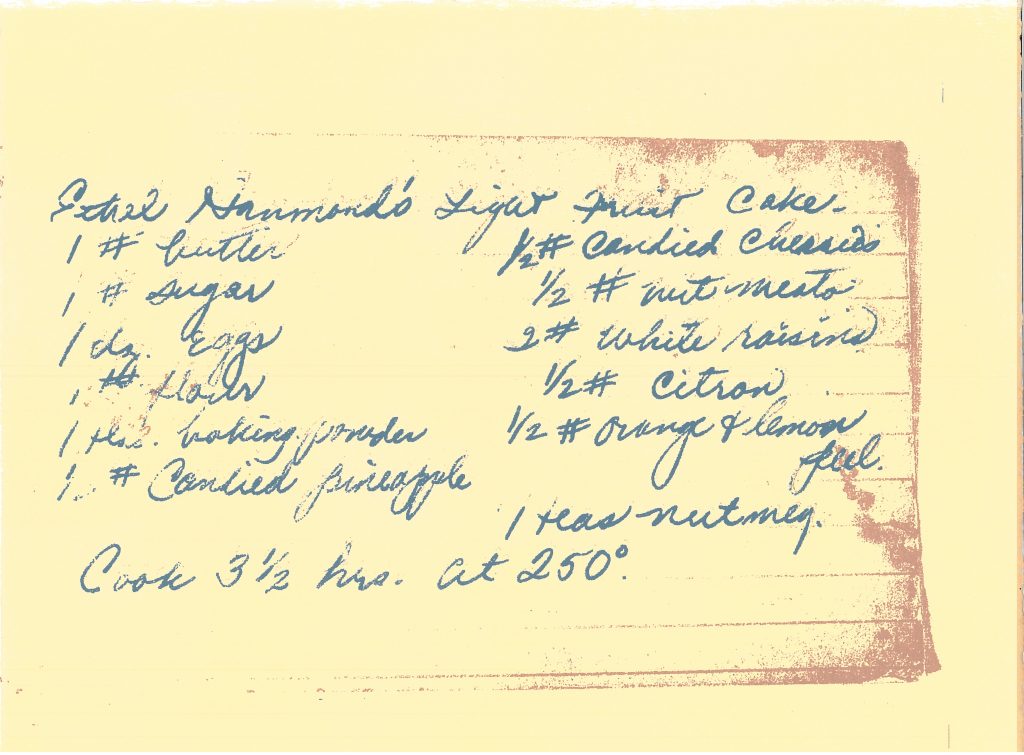 Ethel Hammond's Light Fruit Cake.
1 # butter
1 # sugar
1 dz. eggs
1 # flour
1 tea. baking powder
1 # Candied pineapple
1/2 # Candied Cherries
1/2 # nut meats
2 # White raisins
1/2 # Citron
1/2 # orange & lemon
peel.
1 teas nutmeg.
Cook 3 1/2 hrs. at 250°.